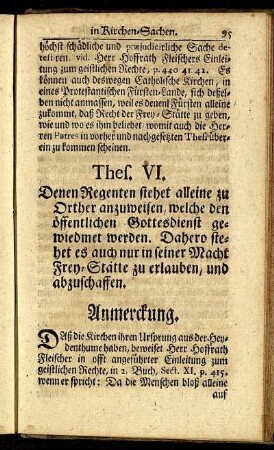 in Kirchen-Sachen. 95
höchst schädliche und præjudicirliche Sache dete-
stiren. vid. Herr Hoffrath Fleischers Einlei-
tung zum geistlichen Rechte, p. 440 41. 42. Es
können auch deswegen Catholische Kirchen, in
eines Protestantischen Fürsten-Lande, sich deßel-
ben nicht anmassen, weil es denen Fürsten alleine
zukommt, daß Recht der Frey-Stätte zu geben,
wie und wo es ihm beliebet womit auch die Her-
ren Patres in vorher und nachgesetzten Thesi über-
ein zu kommen scheinen.
Thes. VI.
Denen Regenten stehet alleine zu
Örther anzuweisen, welche den
öffentlichen Gottesdienst ge-
wiedmet werden. Dahero ste-
het es auch nur in seiner Macht
Frey-Stätte zu erlauben, und
abzuschaffen.
Anmerckung.
Daß die Kirchen ihren Ursprung aus der Hey-
denthume haben, beweiset Herr Hoffrath
Fleischer in offt angeführter Einleitung zum
geistlichen Rechte, in 2. Buch, Sect. XI, p. 415.
wenn er spricht: Da die Menschen bloß alleine
auf